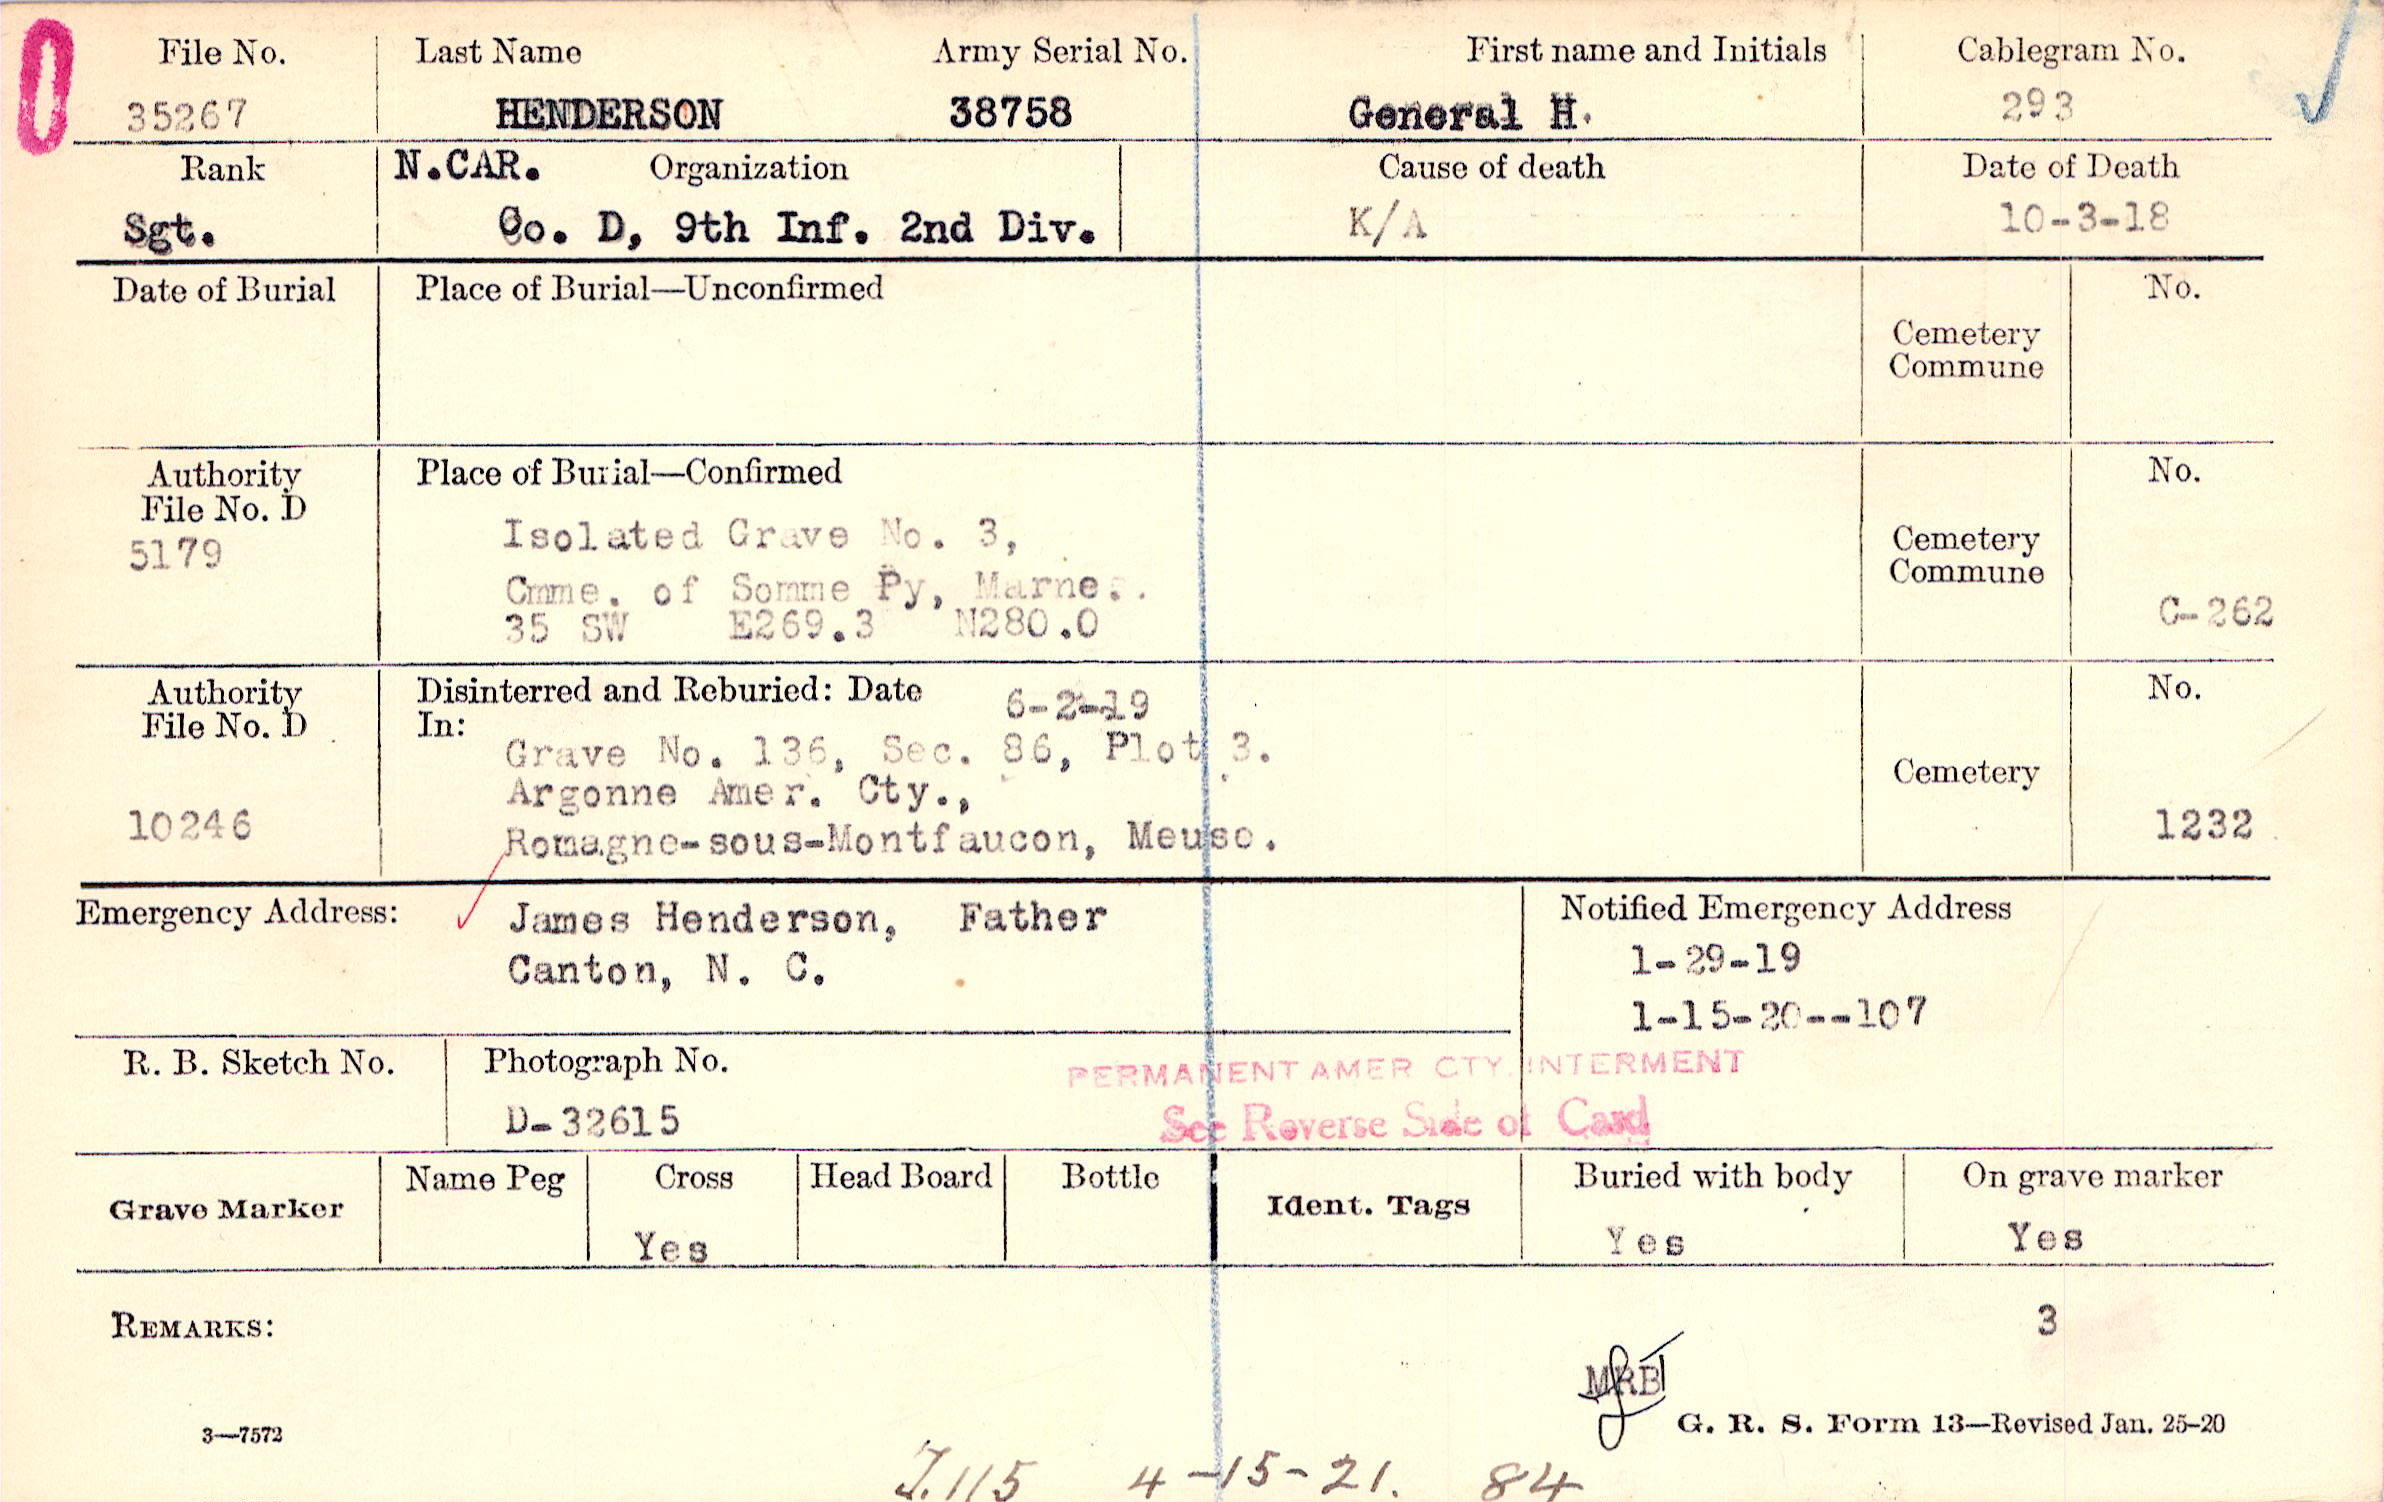 File No. Last Name Army Serial No. First name and Initials Cablegram No.
35267 HENDERSON 38758 General H. 293
Rank N.CAR. Organization Cause of death Date of Death
Sgt. Co. D, 9th Inf. 2nd Div. K/A 10-3-18
Date of Burial Place of Burial—Unconfirmed No.
Cemetery
Commune
Authority Place of Burial—Confirmed No.
File No. D
5179
Isolated Grave No. 3,
Cemetery
Commune
Cmme. of Somme Py, Marne.
35 SW E269.3 N280.0
C-262
Authority Disinterred and Reburied: Date 6-2-19 No.
File No. D In:
Grave No. 136, Sec. 86, Plot 3.
Cemetery
Argonne Amer. Cty.,
10246 Romagne-sous-Montfaucon, Meuse. 1232
Emergency Address: James Henderson, Father Notified Emergency Address
Canton, N. C. 1-29-19
1-15-20--107
R. B. Sketch No. Photograph No. PERMANENT AMER CTY. INTERMENT
D-32615 See Reverse Side of Card
Grave Marker Name Peg Cross Head Board Bottle Ident. Tags Buried with body On grave marker
Yes Yes Yes
REMARKS: 3
MRB
3—7572 G. R. S. Form 13—Revised Jan. 25-20
4-15-21. 84